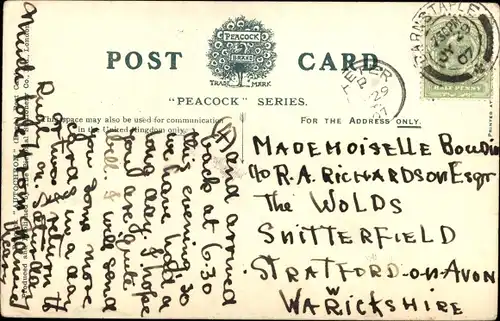 POST CARD
PEACOCK
BRAND
TRADE MARK
"PEACOCK" SERIES.
This space may also be used for communication
in the United Kingdom only.
FOR THE ADDRESS ONLY.
BARNSTAPLE
07
29
HALF PENNY
and arrived
back at 6.30
this evening so
we have had a
long day. I hope
you are quite
well. I will send
you some more
cards in a day
or two. I return to
Rugby on Saturday
with love from
MADEMOISELLE
c/o R.A. RICHARDSON Esqr
The WOLDS
SNITTERFIELD
STRATFORD-ON-AVON
WARICKSHIRE
W